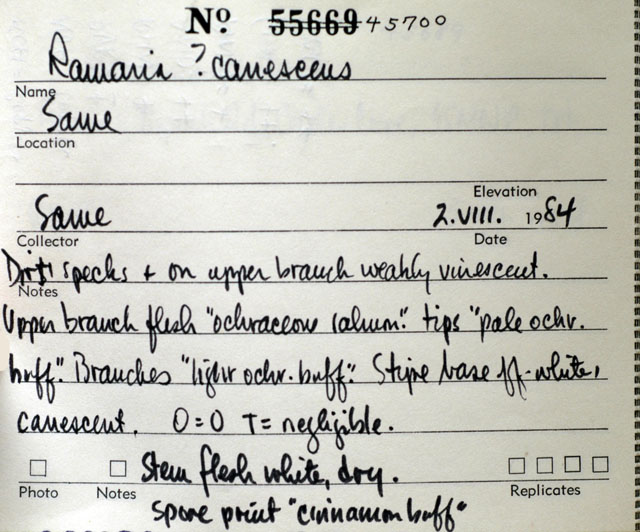 Nº 55669 45700
Ramaria ? canescens
Name
Same
Location
Elevation
Same 2.VIII. 1984
Collector Date
Dirt specks + on upper branch weakly vinescent.
Notes
Upper branch flesh "ochraceous salmon." tips "pale ochr.
buff." Branches "light ochr. buff." Stipe base off-white,
canescent. O=O T= negligible.
Stem flesh white, dry.
Photo Notes Replicates
spore print "cinnamon buff"